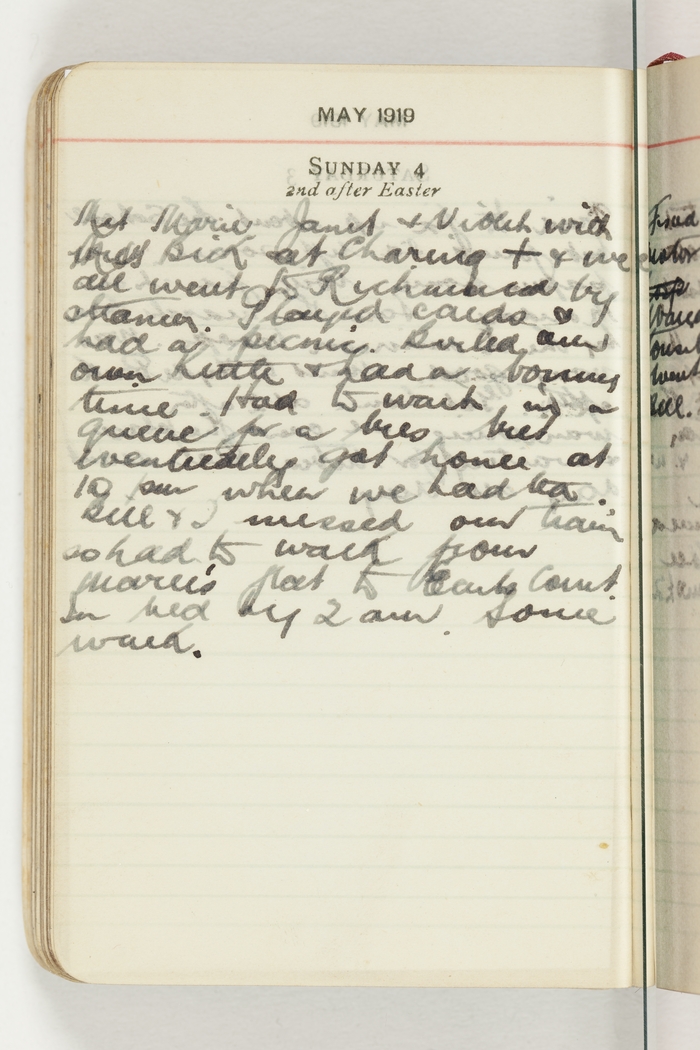 MAY 1919
SUNDAY 4
2nd after Easter
Met Marie Janet & Violet with
Bick at Charing + & we
all went to Richmond by
steamer. Played cards & I
had a picnic. Boiled our
own kettle & had a bonny
time. Had to wait in a
queue for a bus but
eventually got home at
10 pm when we had tea.
Bill & I missed our train
so had to walk from
Marie's flat to Earls Court.
In bed by 2 am. Some
walk.